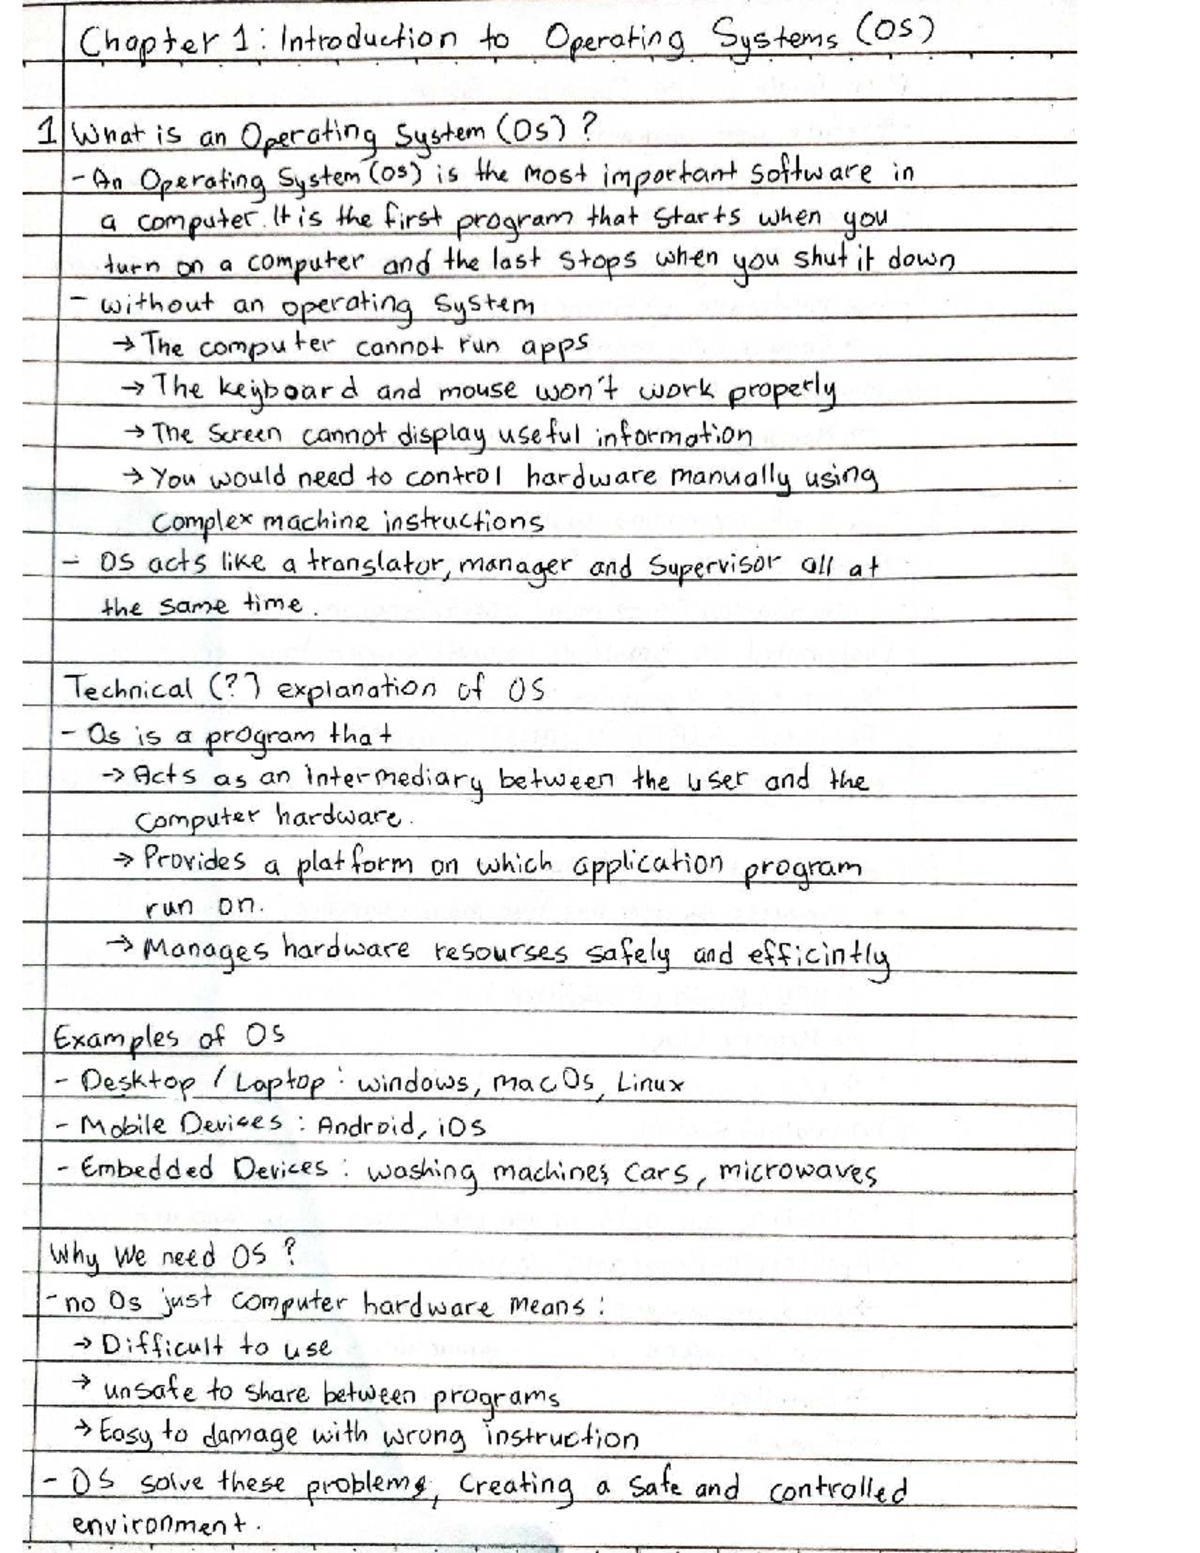 Chapter 1: Introduction to Operating Systems (OS)
1 What is an Operating System (OS) ?
- An Operating System (OS) is the most important software in
a computer. It is the first program that starts when you
turn on a computer and the last stops when you shut it down
- without an operating system
→ The computer cannot run apps
→ The keyboard and mouse won't work properly
→ The screen cannot display useful information
→ You would need to control hardware manually using
complex machine instructions
- OS acts like a translator, manager and supervisor all at
the same time.
Technical (?) explanation of OS
- Os is a program that
→ Acts as an intermediary between the user and the
computer hardware.
→ Provides a platform on which application program
run on.
→ Manages hardware resourses safely and efficintly
Examples of OS
- Desktop / Laptop : windows, macOs, Linux
- Mobile Devices : Android, iOs
- Embedded Devices : washing machines, cars, microwaves
Why We need OS ?
- no Os just computer hardware means :
→ Difficult to use
→ unsafe to share between programs
→ Easy to damage with wrong instruction
- OS solve these problems, creating a safe and controlled
environment.